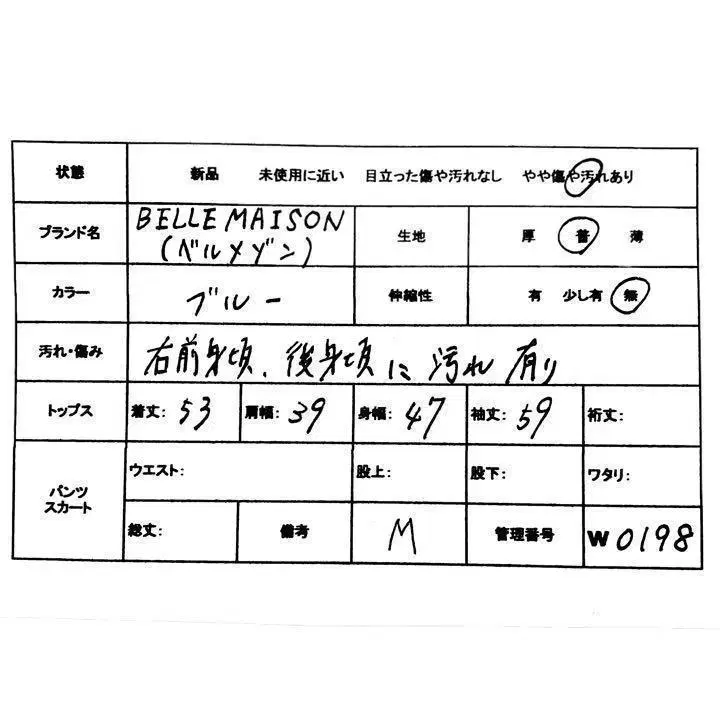 状態 新品 未使用に近い 目立った傷や汚れなし やや傷や汚れあり
ブランド名 BELLE MAISON 生地 厚 普 薄
(ベルメゾン)
カラー ブルー 伸縮性 有 少し有 無
汚れ・傷み 右前身頃、後身頃に汚れ有り
トップス 着丈: 53 肩幅: 39 身幅: 47 袖丈: 59 裄丈:
パンツ ウエスト: 股上: 股下: ワタリ:
スカート
総丈: 備考 M 管理番号 W0198